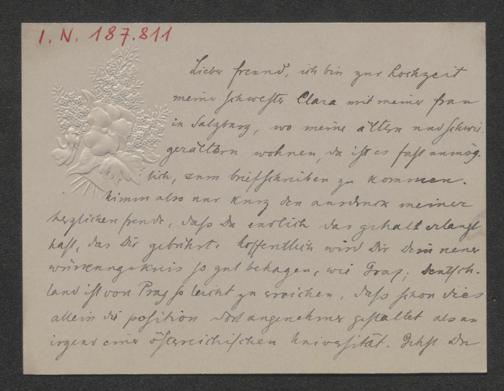 I. N. 187.811
Lieber Freund, ich bin zur Hochzeit
meiner Schwester Clara mit meiner Frau
in Salzburg, wo meine Ältern und Schwie
gerältern wohnen, da ist es fast unmög-
lich, zum Briefschreiben zu kommen.
Nimm also nur kurz den Ausdruck meiner
herzlichen Freude, daß Du endlich das Gehalt erlangt
hast, das Dir gebührt. Hoffentlich wird Dir Dein neuer
Wirkungskreis so gut behagen, wie Graz; Deutsch-
land ist von Prag so leicht zu erreichen, daß schon dies
allein die Position dort angenehmer gestaltet als an
irgend einer österreichischen Universität. Gehst Du